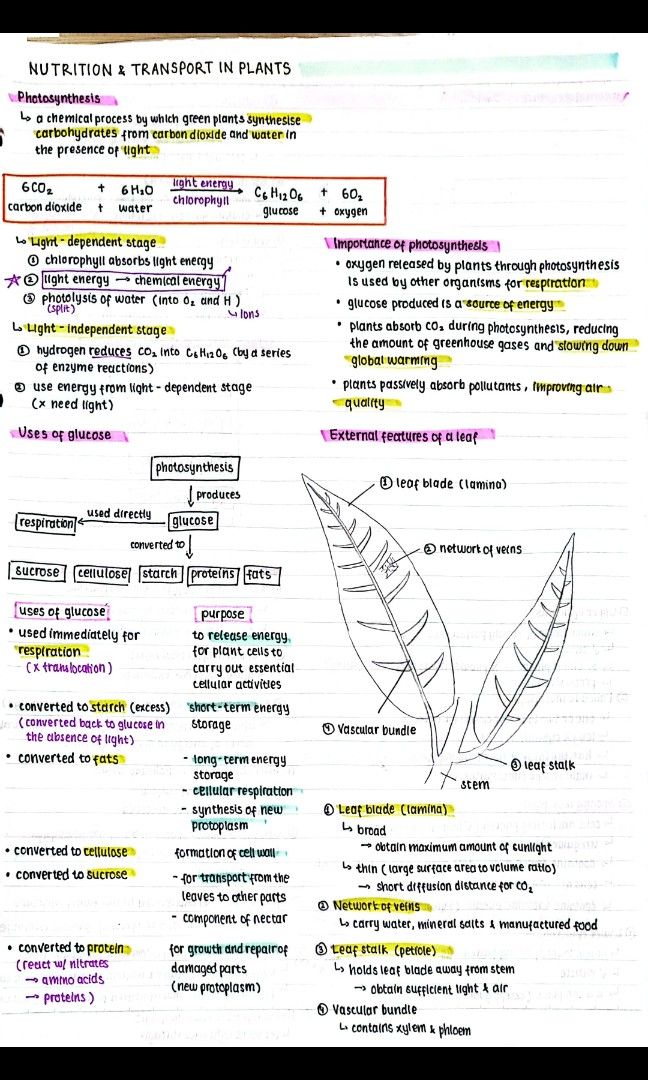 NUTRITION & TRANSPORT IN PLANTS
Photosynthesis
↳ a chemical process by which green plants synthesise
carbohydrates from carbon dioxide and water in
the presence of light
6CO₂ + 6H₂O light energy C₆H₁₂O₆ + 6O₂
carbon dioxide + water chlorophyll glucose + oxygen
↳ Light-dependent stage
① chlorophyll absorbs light energy
☆ ② light energy → chemical energy
③ photolysis of water (into O₂ and H )
(split) ↳ Ions
↳ Light-independent stage
① hydrogen reduces CO₂ into C₆H₁₂O₆ (by a series
of enzyme reactions)
② use energy from light-dependent stage
(x need light)
Importance of photosynthesis
• oxygen released by plants through photosynthesis
is used by other organisms for respiration
• glucose produced is a source of energy
• plants absorb CO₂ during photosynthesis, reducing
the amount of greenhouse gases and slowing down
global warming
• plants passively absorb pollutants, improving air
quality
Uses of glucose
photosynthesis
↓ produces
respiration ← used directly glucose
converted to ↓
sucrose cellulose starch proteins fats
uses of glucose purpose
• used immediately for
respiration
(x translocation)
to release energy
for plant cells to
carry out essential
cellular activities
• converted to starch (excess)
(converted back to glucose in
the absence of light)
short-term energy
storage
• converted to fats
- long-term energy
storage
- cellular respiration
- synthesis of new
protoplasm
• converted to cellulose formation of cell wall
• converted to sucrose
- for transport from the
leaves to other parts
- component of nectar
• converted to protein
(react w/ nitrates
→ amino acids
→ proteins)
for growth and repair of
damaged parts
(new protoplasm)
External features of a leaf
① leaf blade (lamina)
② network of veins
④ Vascular bundle
③ leaf stalk
stem
① Leaf blade (lamina)
↳ broad
→ obtain maximum amount of sunlight
↳ thin (large surface area to volume ratio)
→ short diffusion distance for CO₂
② Network of veins
↳ carry water, mineral salts & manufactured food
③ Leaf stalk (petiole)
↳ holds leaf blade away from stem
→ obtain sufficient light & air
④ Vascular bundle
↳ contains xylem & phloem